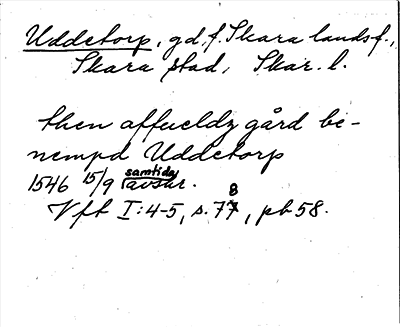 Uddetorp, gd, f. Skara landsf.,
Skara stad, Skar. l.
then affueldz gård be-
nempd Uddetorp
samtida
1546 15/9 avskr.
8
Vft I:4-5, s. 77, pb 58.